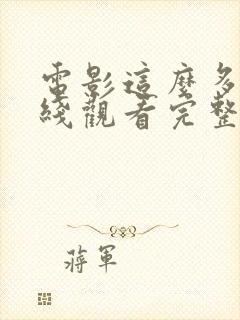 電影這麼多
綫觀看完整
蔣軍